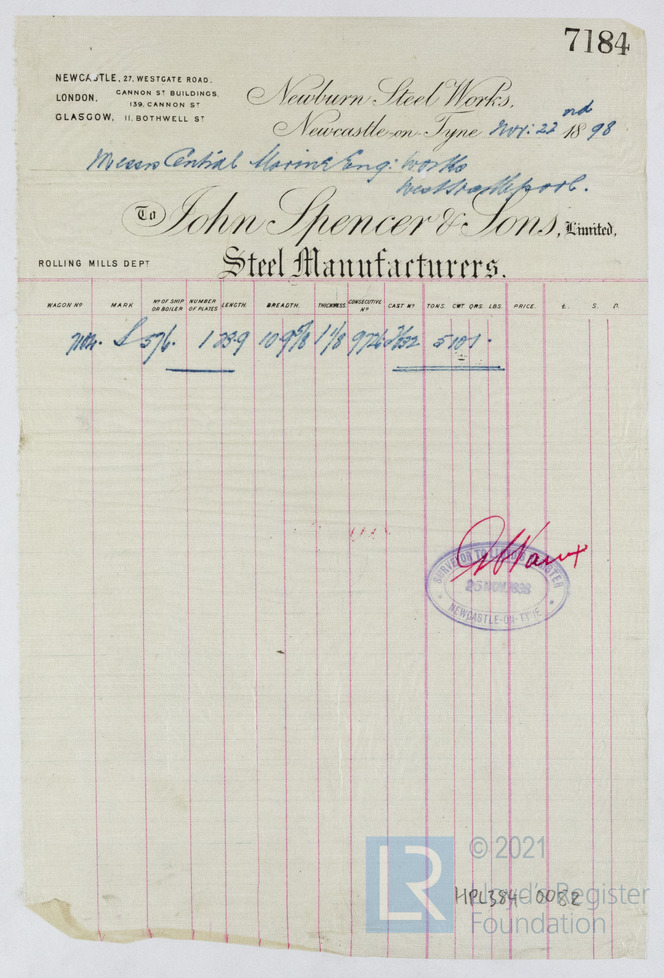 7184
NEWCASTLE, 27, WESTGATE ROAD.
LONDON, CANNON ST BUILDINGS,
139, CANNON ST
GLASGOW, 11, BOTHWELL ST
Newburn Steel Works,
Newcastle-on-Tyne Nov: 22nd 1898
Messrs Central Marine Eng: Works
West Hartlepool.
To John Spencer & Sons, Limited,
ROLLING MILLS DEPT
Steel Manufacturers.
WAGON No MARK No OF SHIP OR BOILER NUMBER OF PLATES LENGTH. BREADTH. THICKNESS. CONSECUTIVE No CAST No TONS. CWT QRS. LBS. PRICE. £. S. D.
576. 1 23.9 10 9 5/8 1 1/8 5 10 1 -
SURVEYOR TO LLOYD'S REGISTER
25 NOV. 1898
NEWCASTLE-ON-TYNE
LR © 2021
HPL384-0082
Lloyd's Register
Foundation